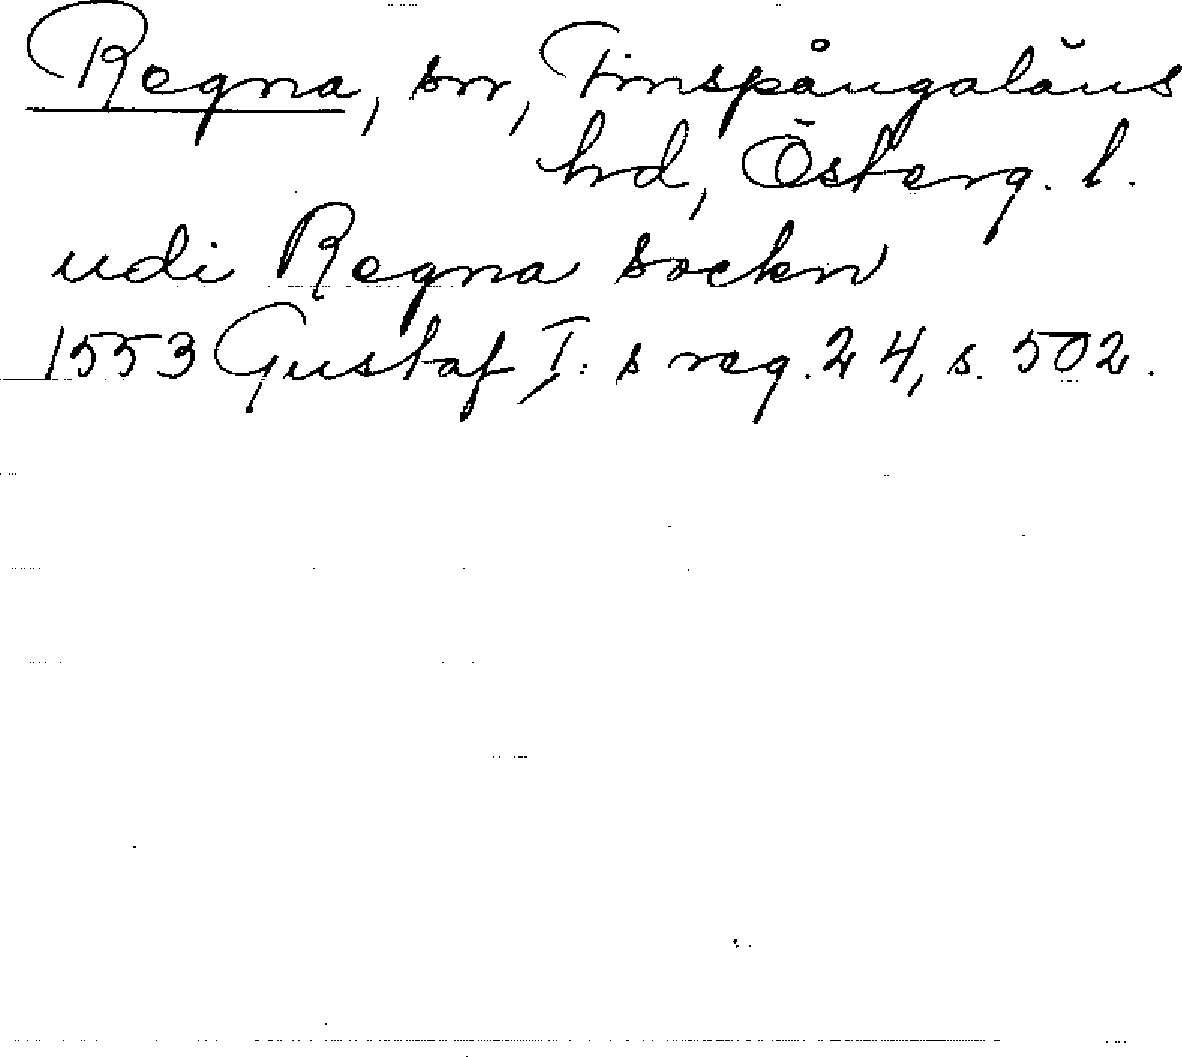 Regna, sn, Finspångaläns
hd, Österg. l.
udi Regna sockn
1553 Gustaf I:s reg. 24, s. 502.